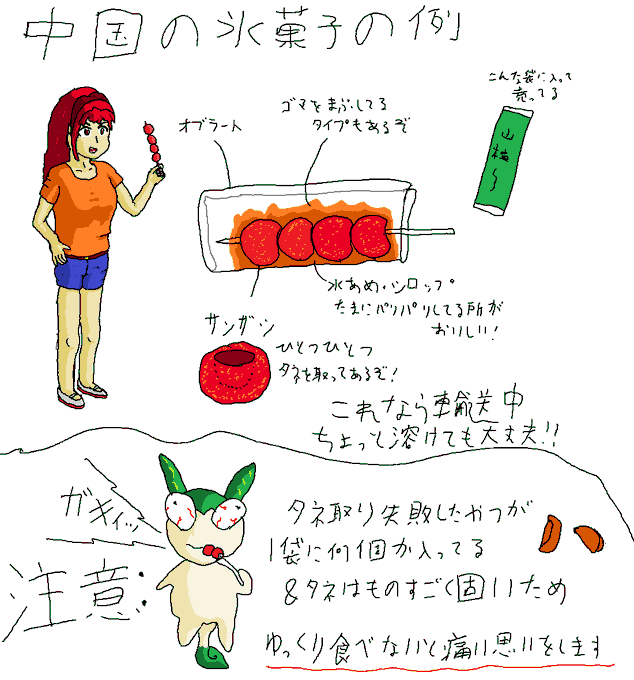 中国の氷菓子の例
こんな袋に入って
売ってる
ゴマをまぶしてる
タイプもあるぞ
オブラート
山楂〜
水あめ・シロップ
たまにパリパリしてる所が
おいしい!
サンザシ
ひとつひとつ
タネを取ってあるぞ!
これなら輸送中
ちょっと溶けても大丈夫!!
ガキィッ
注意:
タネ取り失敗したやつが
1袋に何個か入ってる
&タネはものすごく固いため
ゆっくり食べないと痛い思いをします